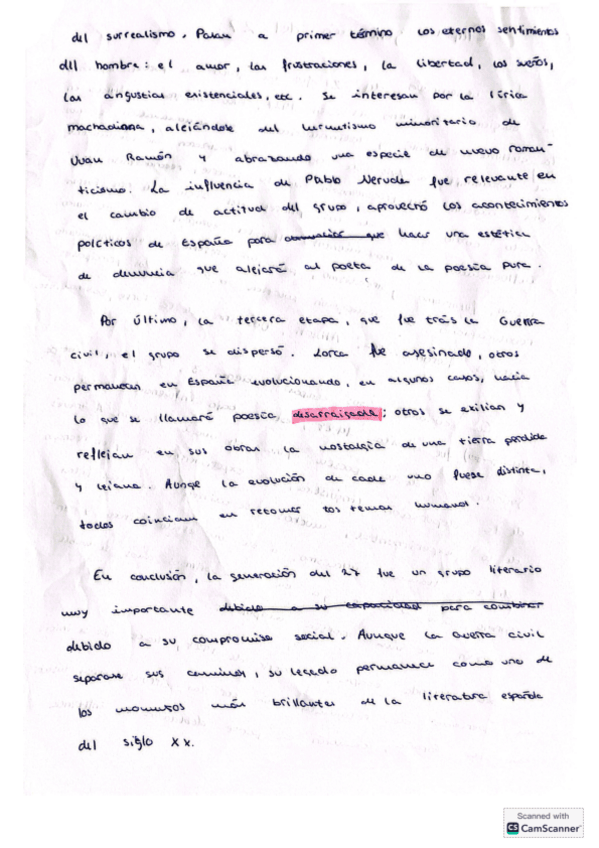 del surrealismo. Pasan a primer término los eternos sentimientos
del hombre: el amor, las frustraciones, la libertad, los sueños,
las angustias existenciales, etc. Se interesan por la lírica
machadiana, alejándose del hermetismo minoritario de
Juan Ramón y abrazando una especie de nuevo roman-
ticismo. La influencia de Pablo Neruda fue relevante en
el cambio de actitud del grupo, aprovechó los acontecimientos
políticos de España para que hacer una estética
de denuncia que alejará al poeta de la poesía pura.
Por último, la tercera etapa, que fue trás la Guerra
civil, el grupo se dispersó. Lorca fue asesinado, otros
permanecen en España evolucionando, en algunos casos, hacia
lo que se llamará poesía desarraigada; otros se exilian y
reflejan en sus obras la nostalgia de una tierra perdida
y lejana. Aunqe la evolución de cada uno fuese distinta,
todos coinciden en retomar los temas humanos.
En conclusión, la generación del 27 fue un grupo literario
muy importante debido a su capacidad para combinar
debido a su compromiso social. Aunque la Guerra civil
separase sus caminos, su legado permanece como uno de
los momentos más brillantes de la literatura española
del siglo XX.
Scanned with
CS CamScanner